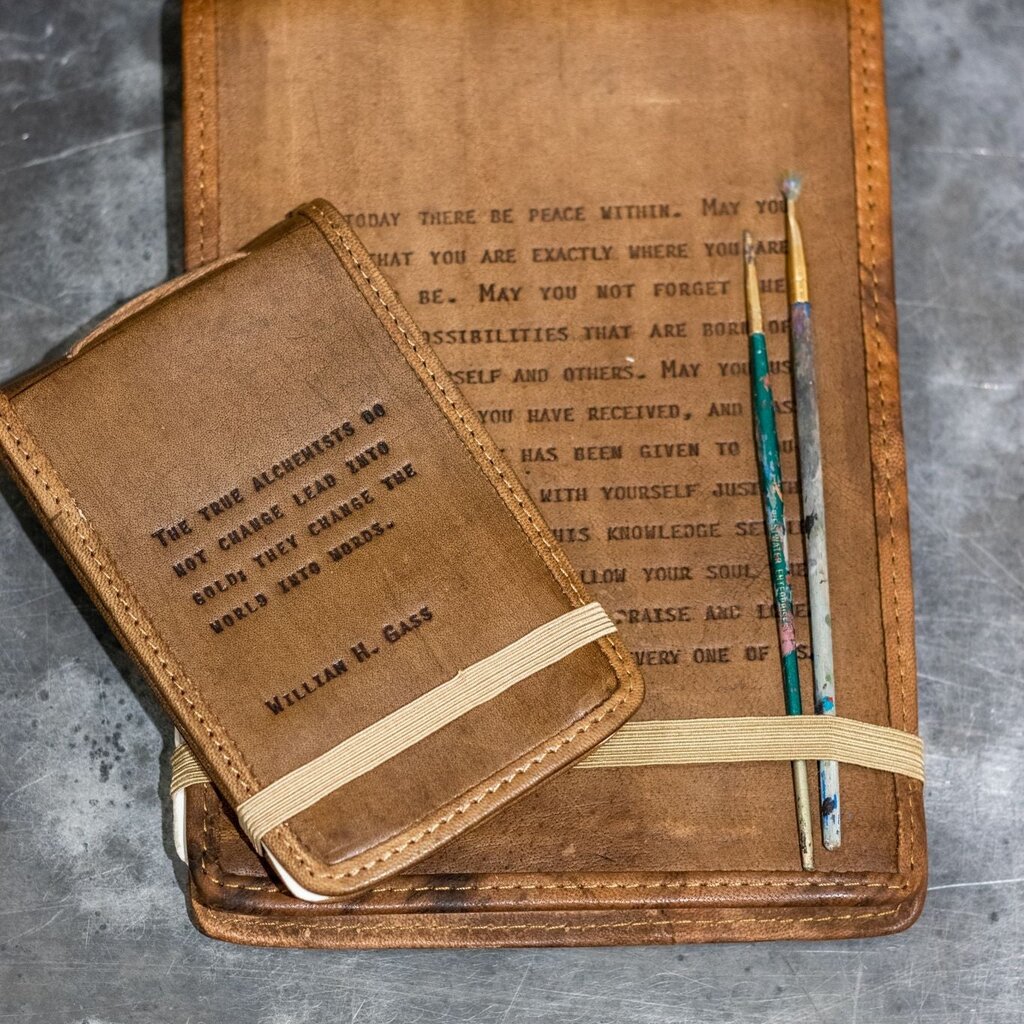 THE TRUE ALCHEMISTS DO
NOT CHANGE LEAD INTO
GOLD; THEY CHANGE THE
WORLD INTO WORDS.
WILLIAM H. GASS
TODAY THERE BE PEACE WITHIN. MAY YOU
THAT YOU ARE EXACTLY WHERE YOU ARE
BE. MAY YOU NOT FORGET
THAT ARE BORN OF
AND OTHERS. MAY YOU
YOU HAVE RECEIVED, AND
HAS BEEN GIVEN TO
WITH YOURSELF JUST
KNOWLEDGE
YOUR SOUL
PRAISE AND LOVE
ONE OF